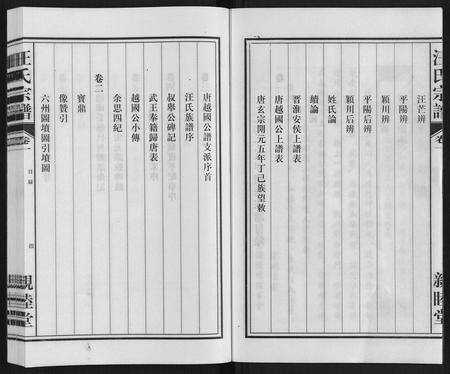 汪氏宗譜
卷一
親睦堂
汪芒辨
平陽辨
潁川辨
平陽后辨
潁川后辨
姓氏論
續論
晉淮安侯上譜表
唐越國公上譜表
唐玄宗開元五年丁己族望敕
唐越國公譜支派序首
汪氏族譜序
叔舉公碑記
武王奉籍歸唐表
越國公小傳
余思四紀
卷二
寶鼎
像贊引
六州圖墳圖引墳圖
汪氏宗譜
卷一
目錄
四
親睦堂